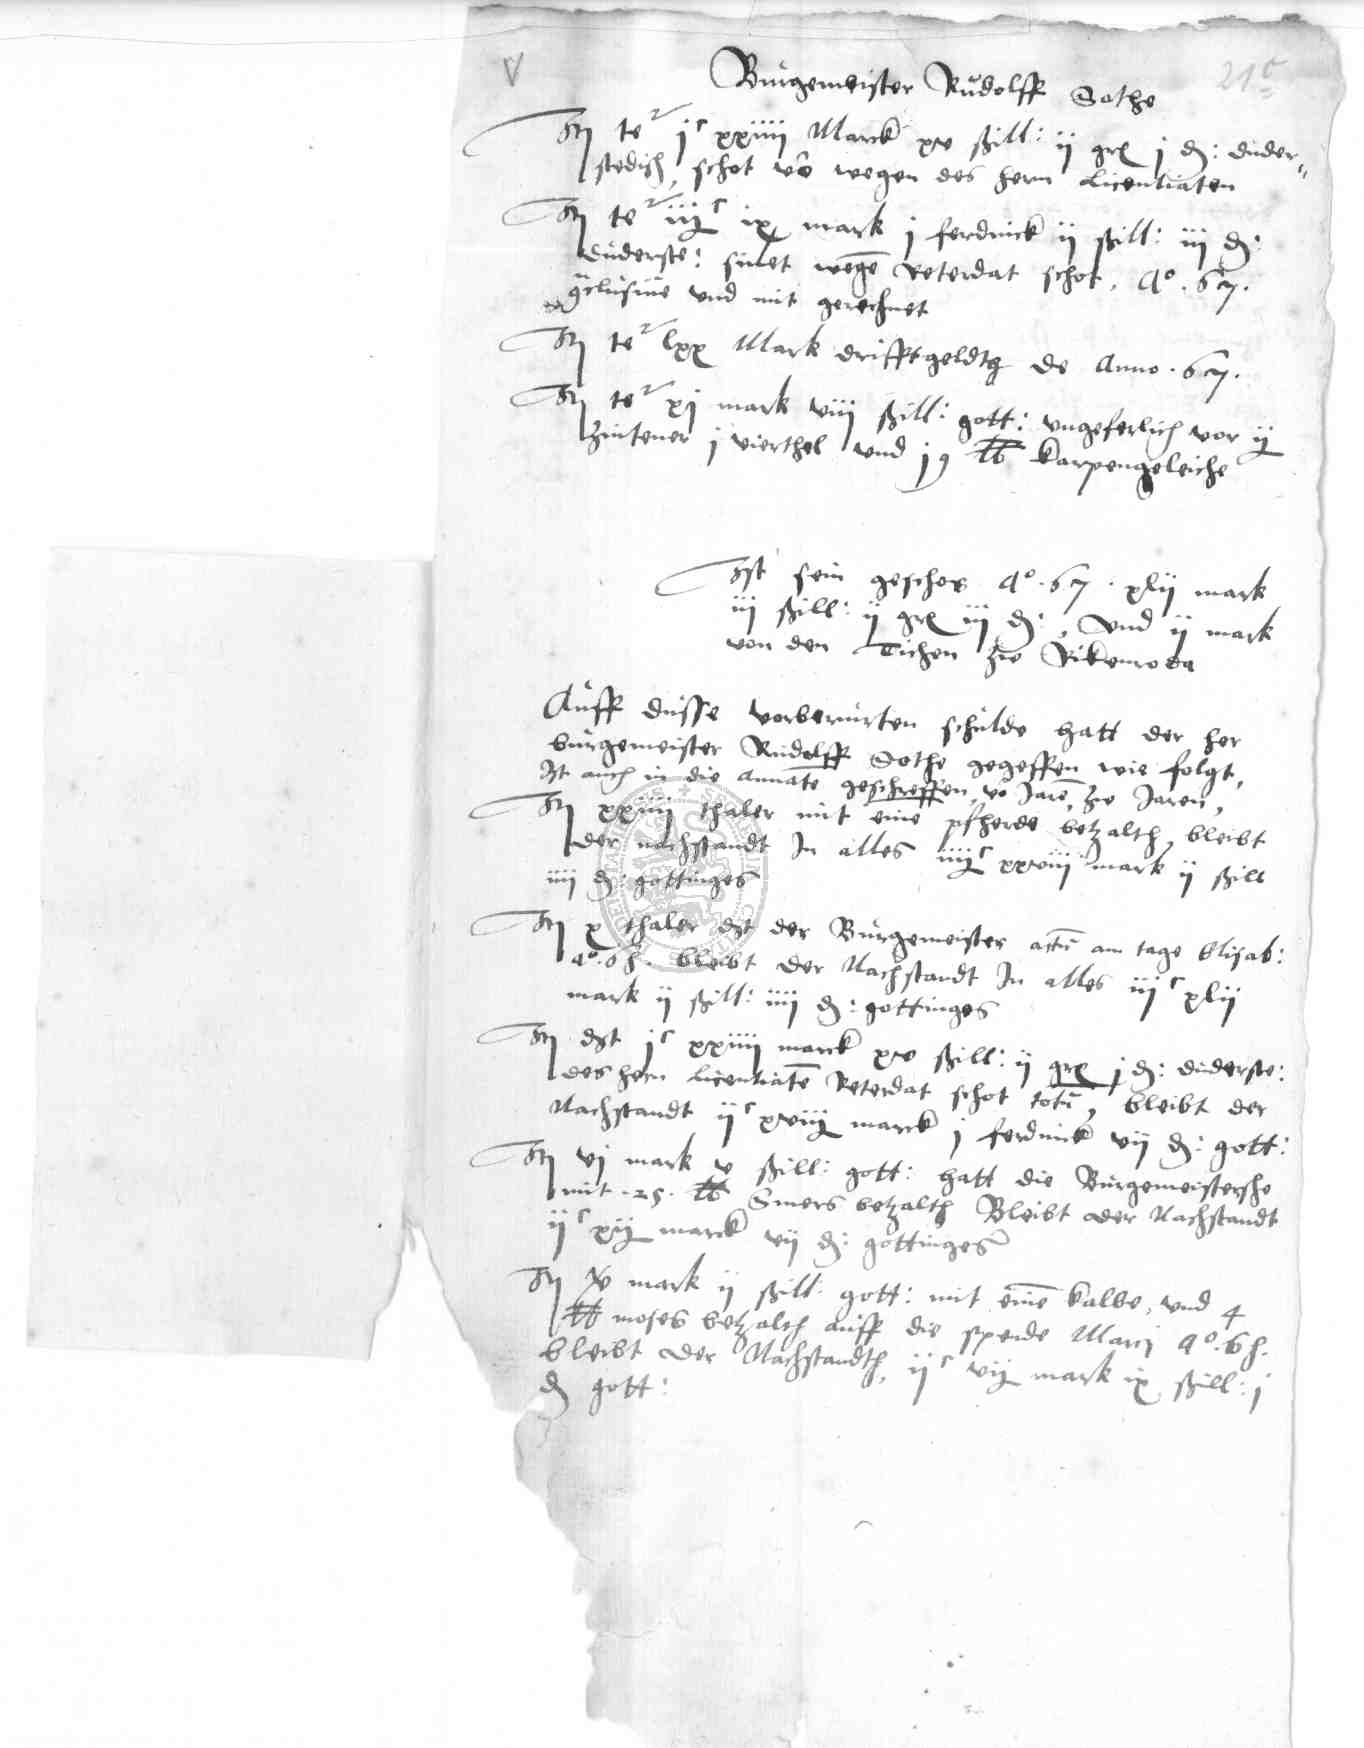 21c
Burgemeister Rudolff Dothe
It te jc xxiiij Marck xv ßill: ij grß j d: duder-
stedisch schot vō wegen des hern Licentiaten
It te iijc ix mark j ferdinck ij ßill: iij d:
duderste: sinet wegē Reterdat schot, Ao. 67.
inclusiue vnd mit gerechnet
It te lxx Mark drifftgeldt de Anno. 67.
It te xj mark viij ßill: gott: vngeferlich vor ij
Zintener j vierthel vnd j9 lb karpengeleiche
Ist sein geschos Ao. 67. xlij mark
iij ßill: ij grß iij d:, Vnd ij mark
von den Tichen zu Rikenroda
Auff dusse vorberurten schulde hatt der her
burgemeister Rudolff Dothe gegeffen wie folgt,
Ist auch in die annate geschreffen, vō Jarē, zu Jaren,
It xxiiij thaler mit eine pfherde betzalth, bleibt
der nachstandt In alles iiijc xxviij mark ij ßill
iiij d: gottinges
It x thaler dt der Burgemeister am tage Elisab:
Ao. 68. bleibt der Nachstandt In alles iijc xlij
mark ij ßill: iiij d: gottinges
It dt jc xxiiij marck xv ßill: ij grß j d: duderste:
des hern Licentiatē Reterdat schot totū, bleibt der
Nachstandt ijc xviij marck j ferdinck vij d: gott:
It vj mark v ßill: gott: hatt die Burgemeistersche
mit .25. lb Smers betzalth Bleibt der Nachstandt
ijc xij marck vij d: gottinges
It iv mark ij ßill: gott: mit einē kalbe, vnd 4
lb moses betzalth auff die spende Marcj Ao. 68.
bleibt der Nachstandth, ijc vij mark ix ßill: j
d gott: